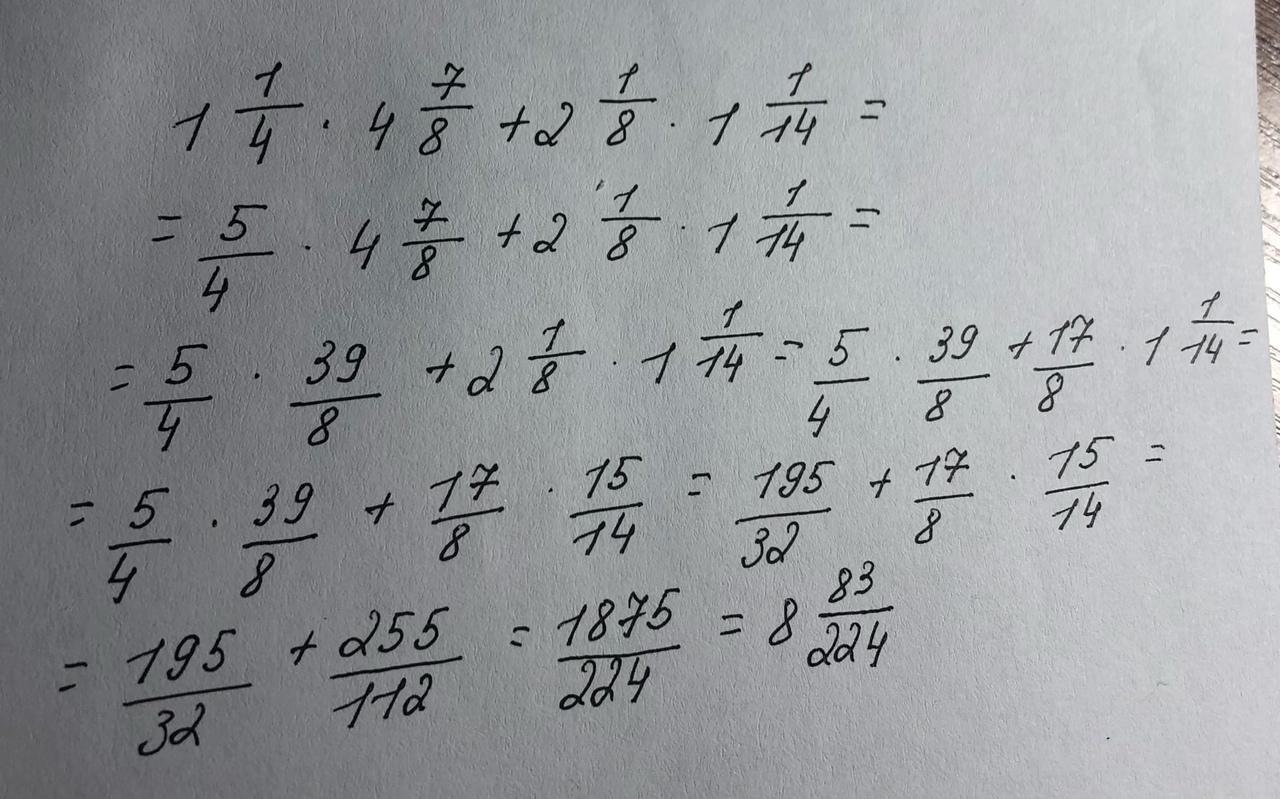 1 1/4 · 4 7/8 + 2 1/8 · 1 1/14 =
= 5/4 · 4 7/8 + 2 1/8 · 1 1/14 =
= 5/4 · 39/8 + 2 1/8 · 1 1/14 = 5/4 · 39/8 + 17/8 · 1 1/14 =
= 5/4 · 39/8 + 17/8 · 15/14 = 195/32 + 17/8 · 15/14 =
= 195/32 + 255/112 = 1875/224 = 8 83/224